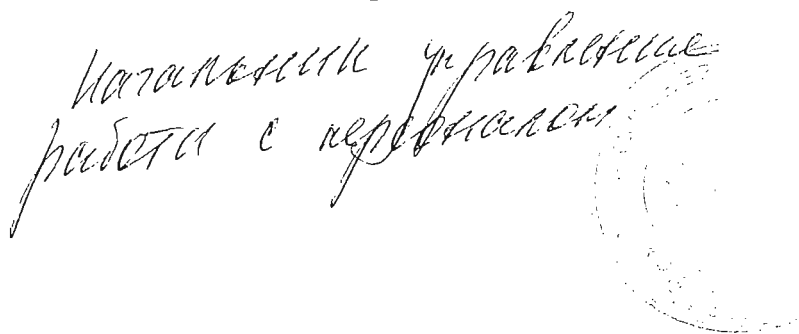 Начальник управление
работи с персоналом